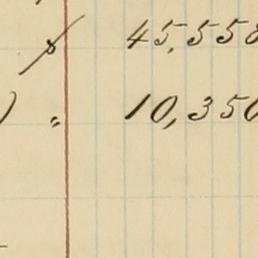 45,558
) " 10,350